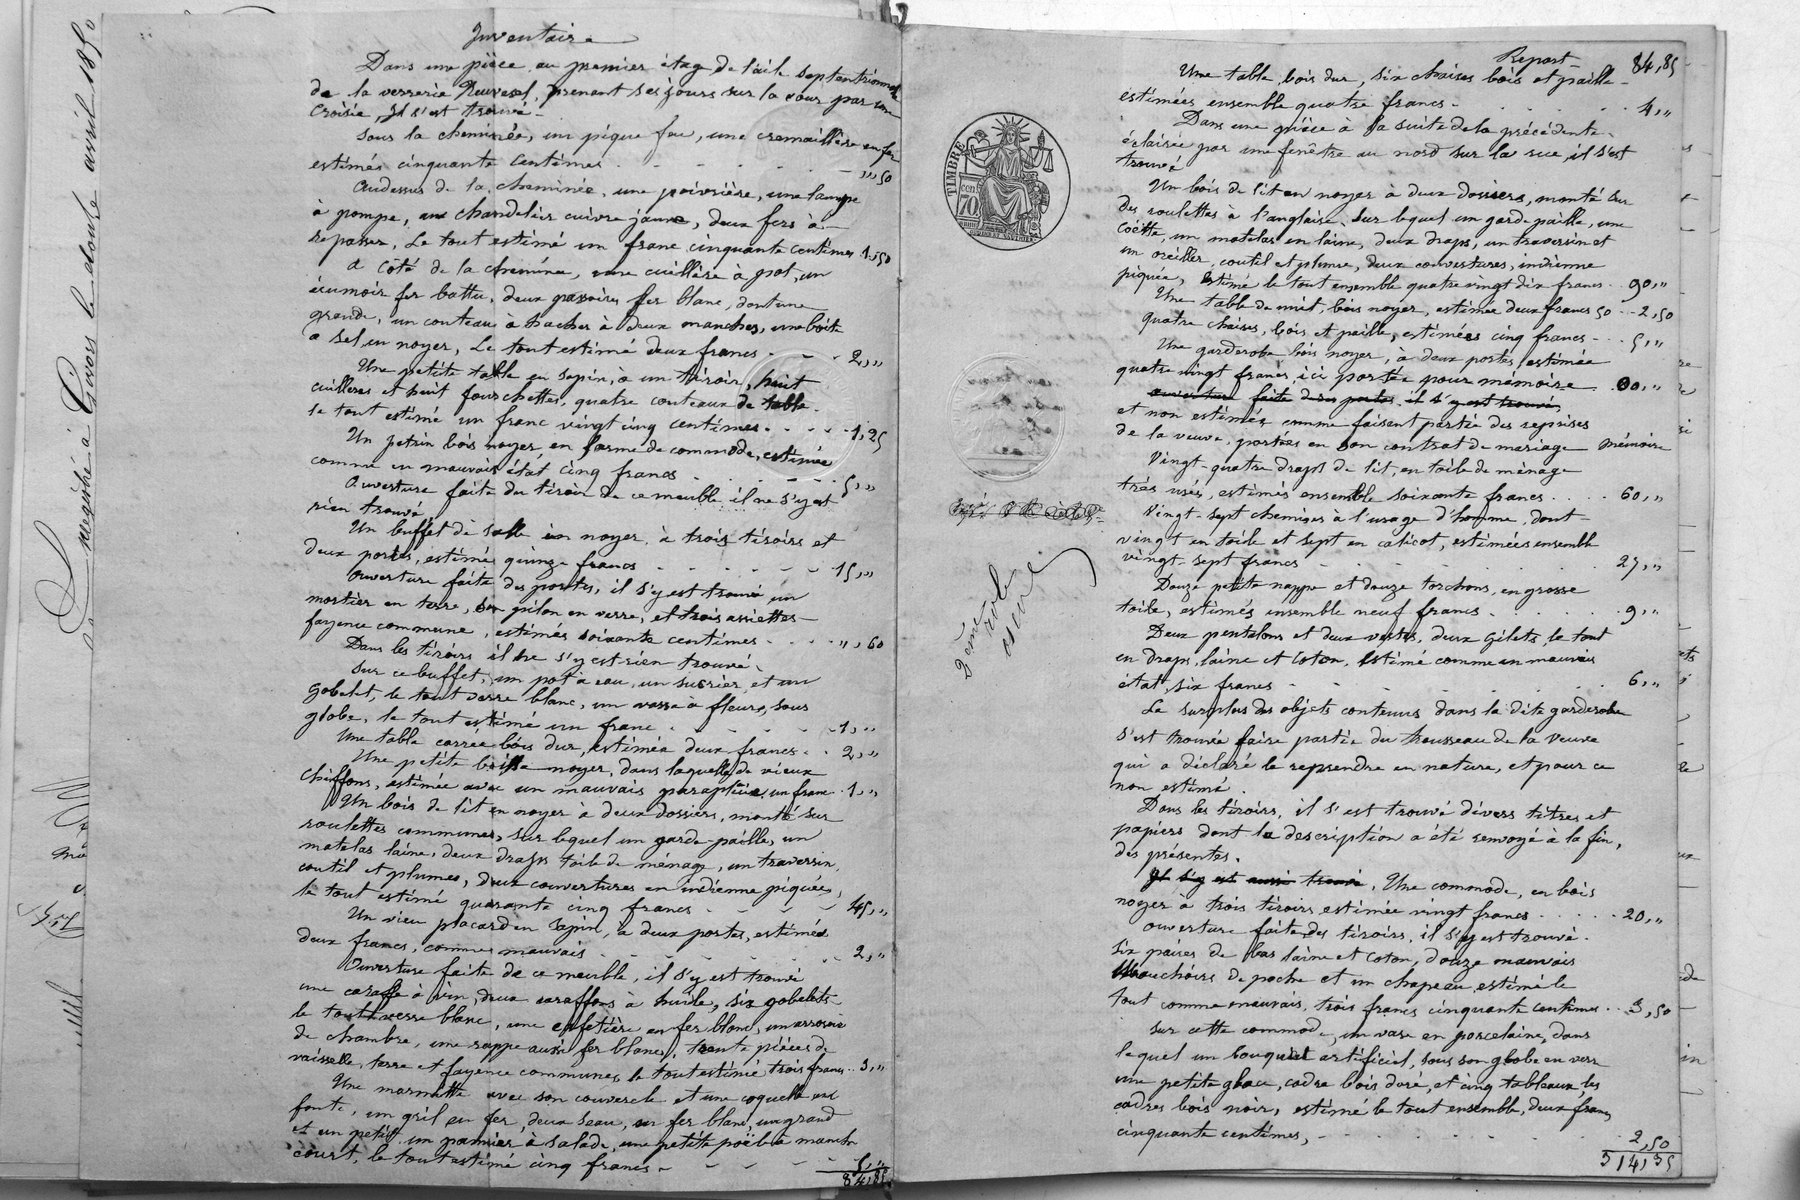 Inventaire
Dans une pièce au premier étage de l'aile septentrionale
de la verrerie Neuvesel, prenant ses jours sur la cour par une
croisée, il s'est trouvé.
Sous la cheminée, un pique feu, une cremaillère en fer
estimés cinquante centimes - - - - ",50
Audessus de la cheminée, une poivrière, une lampe
à pompe, un chandelier cuivre jaune, deux fers à
repasser, le tout estimé un franc cinquante centimes 1,50
A côté de la cheminée, une cuillère à pot, un
écumoir fer battu, deux passoires fer blanc, dont une
grande, un couteau à hacher à deux manches, une boite
a sel en noyer, le tout estimé deux francs - - - 2,"
Une petite table en sapin, à un tiroir, huit
cuilleres et huit fourchettes, quatre couteaux de table
le tout estimé un franc vingt cinq centimes - - - 1,25
Un petrin bois noyer, en forme de commode, estimée
comme en mauvais état cinq francs - - - 5,"
Ouverture faite du tiroir de ce meuble il ne s'y est
rien trouvé
Un buffet de salle en noyer, à trois tiroirs et
deux portes, estimé quinze francs - - - 15,"
Ouverture faite des portes, il s'y est trouvé un
mortier en terre, son pilon en verre, et trois assiettes
fayence commune, estimés soixante centimes - - - ",60
Dans les tiroirs il ne s'y est rien trouvé.
Sur ce buffet, un pot à eau, un sucrier et un
gobelet, le tout verre blanc, un vase à fleurs, sous
globe, le tout estimé un franc - - - 1,"
Une table carrée bois dur, estimée deux francs - - 2,"
Une petite boîte noyer, dans laquelle de vieux
chiffons, estimée avec un mauvais parapluie, un franc 1,"
Un bois de lit en noyer à deux dossiers, monté sur
roulettes communes, sur lequel un garde-paille, un
matelas laine, deux draps toile de ménage, un traversin,
coutil et plumes, deux couvertures en indienne piquées,
le tout estimé quarante cinq francs - - - 45,"
Un vieu placard en sapin, a deux portes, estimé
deux francs, comme mauvais - - - 2,"
Ouverture faite de ce meuble, il s'y est trouvé
une caraffe à vin, deux caraffons à huile, six gobelets
le tout verre blanc, une cafetière en fer blanc, un arrosoir
de chambre, une rappe aussi fer blanc, trente pièces de
vaisselle, terre et fayence communes, le tout estimé trois francs 3,"
Une marmitte avec son couvercle et une coquelle en
fonte, un gril en fer, deux seaux en fer blanc, un grand
et un petit, un pannier à salade, une petite poële à manche
court, le tout estimé cinq francs - - - 5,"
84,85
Report 84,85
Une table bois dur, six chaises bois et paille
estimées ensemble quatre francs - 4,"
Dans une pièce à la suite de la précédente
éclairée par une fenêtre au nord sur la rue, il s'est
trouvé
Un bois de lit en noyer à deux dossiers, monté sur
des roulettes à l'anglaise, sur lequel un garde paille, une
coëtte, un matelas en laine, deux draps, un traversin et
un oreiller, coutil et plume, deux couvertures, indienne
piquée, estimé le tout ensemble quatre vingt dix francs 90,"
Une table de nuit, bois noyer, estimée deux francs 50 - 2,50
quatre chaises, bois et paille, estimées cinq francs - 5,"
Une garderobe bois noyer, à deux portes, estimée
quatre vingt francs, ici portée pour mémoire 00,"
ouverture faite de ses portes, il s'y est trouvé
et non estimée, comme faisant partie des reprises
de la veuve, portées en son contrat de mariage mémoire
Vingt-quatre draps de lit, en toile de ménage
très usés, estimés ensemble soixante francs . . . . 60,"
Vingt-sept chemises à l'usage d'homme, dont
vingt en toile et sept en calicot, estimées ensemble
vingt-sept francs - 27,"
Douze petite nappe et douze torchons, en grosse
toile, estimés ensemble neuf francs - 9,"
Deux pentalons et deux vestes, deux gilets, le tout
en draps, laine et coton, estimé comme en mauvais
état, six francs - 6,"
Le surplus des objets contenus dans la dite garderobe
s'est trouvée faire partie du trousseau de la veuve
qui a déclaré le reprendre en nature, et pour ce
non estimé.
Dans les tiroirs, il s'est trouvé divers titres et
papiers dont la description a été renvoyé à la fin,
des présentes.
Il s'y est aussi trouvé, Une commode, en bois
noyer à trois tiroirs, estimée vingt francs . . . . . 20,"
Ouverture faite des tiroirs, il s'y est trouvé
six paires de bas laine et coton, douze mauvais
mouchoirs de poche et un chapeau, estimé le
tout comme mauvais, trois francs cinquante centimes . . 3,50
Sur cette commode, un vase en porcelaine, dans
lequel un bouquet artificiel, sous son globe en verre
une petite glace, cadre bois doré, et cinq tableaux, les
cadres bois noir, estimé le tout ensemble, deux francs
cinquante centimes, - 2,50
314,35
TIMBRE
70
2ème rôle
Inégistré à Givors le douze avril 1850